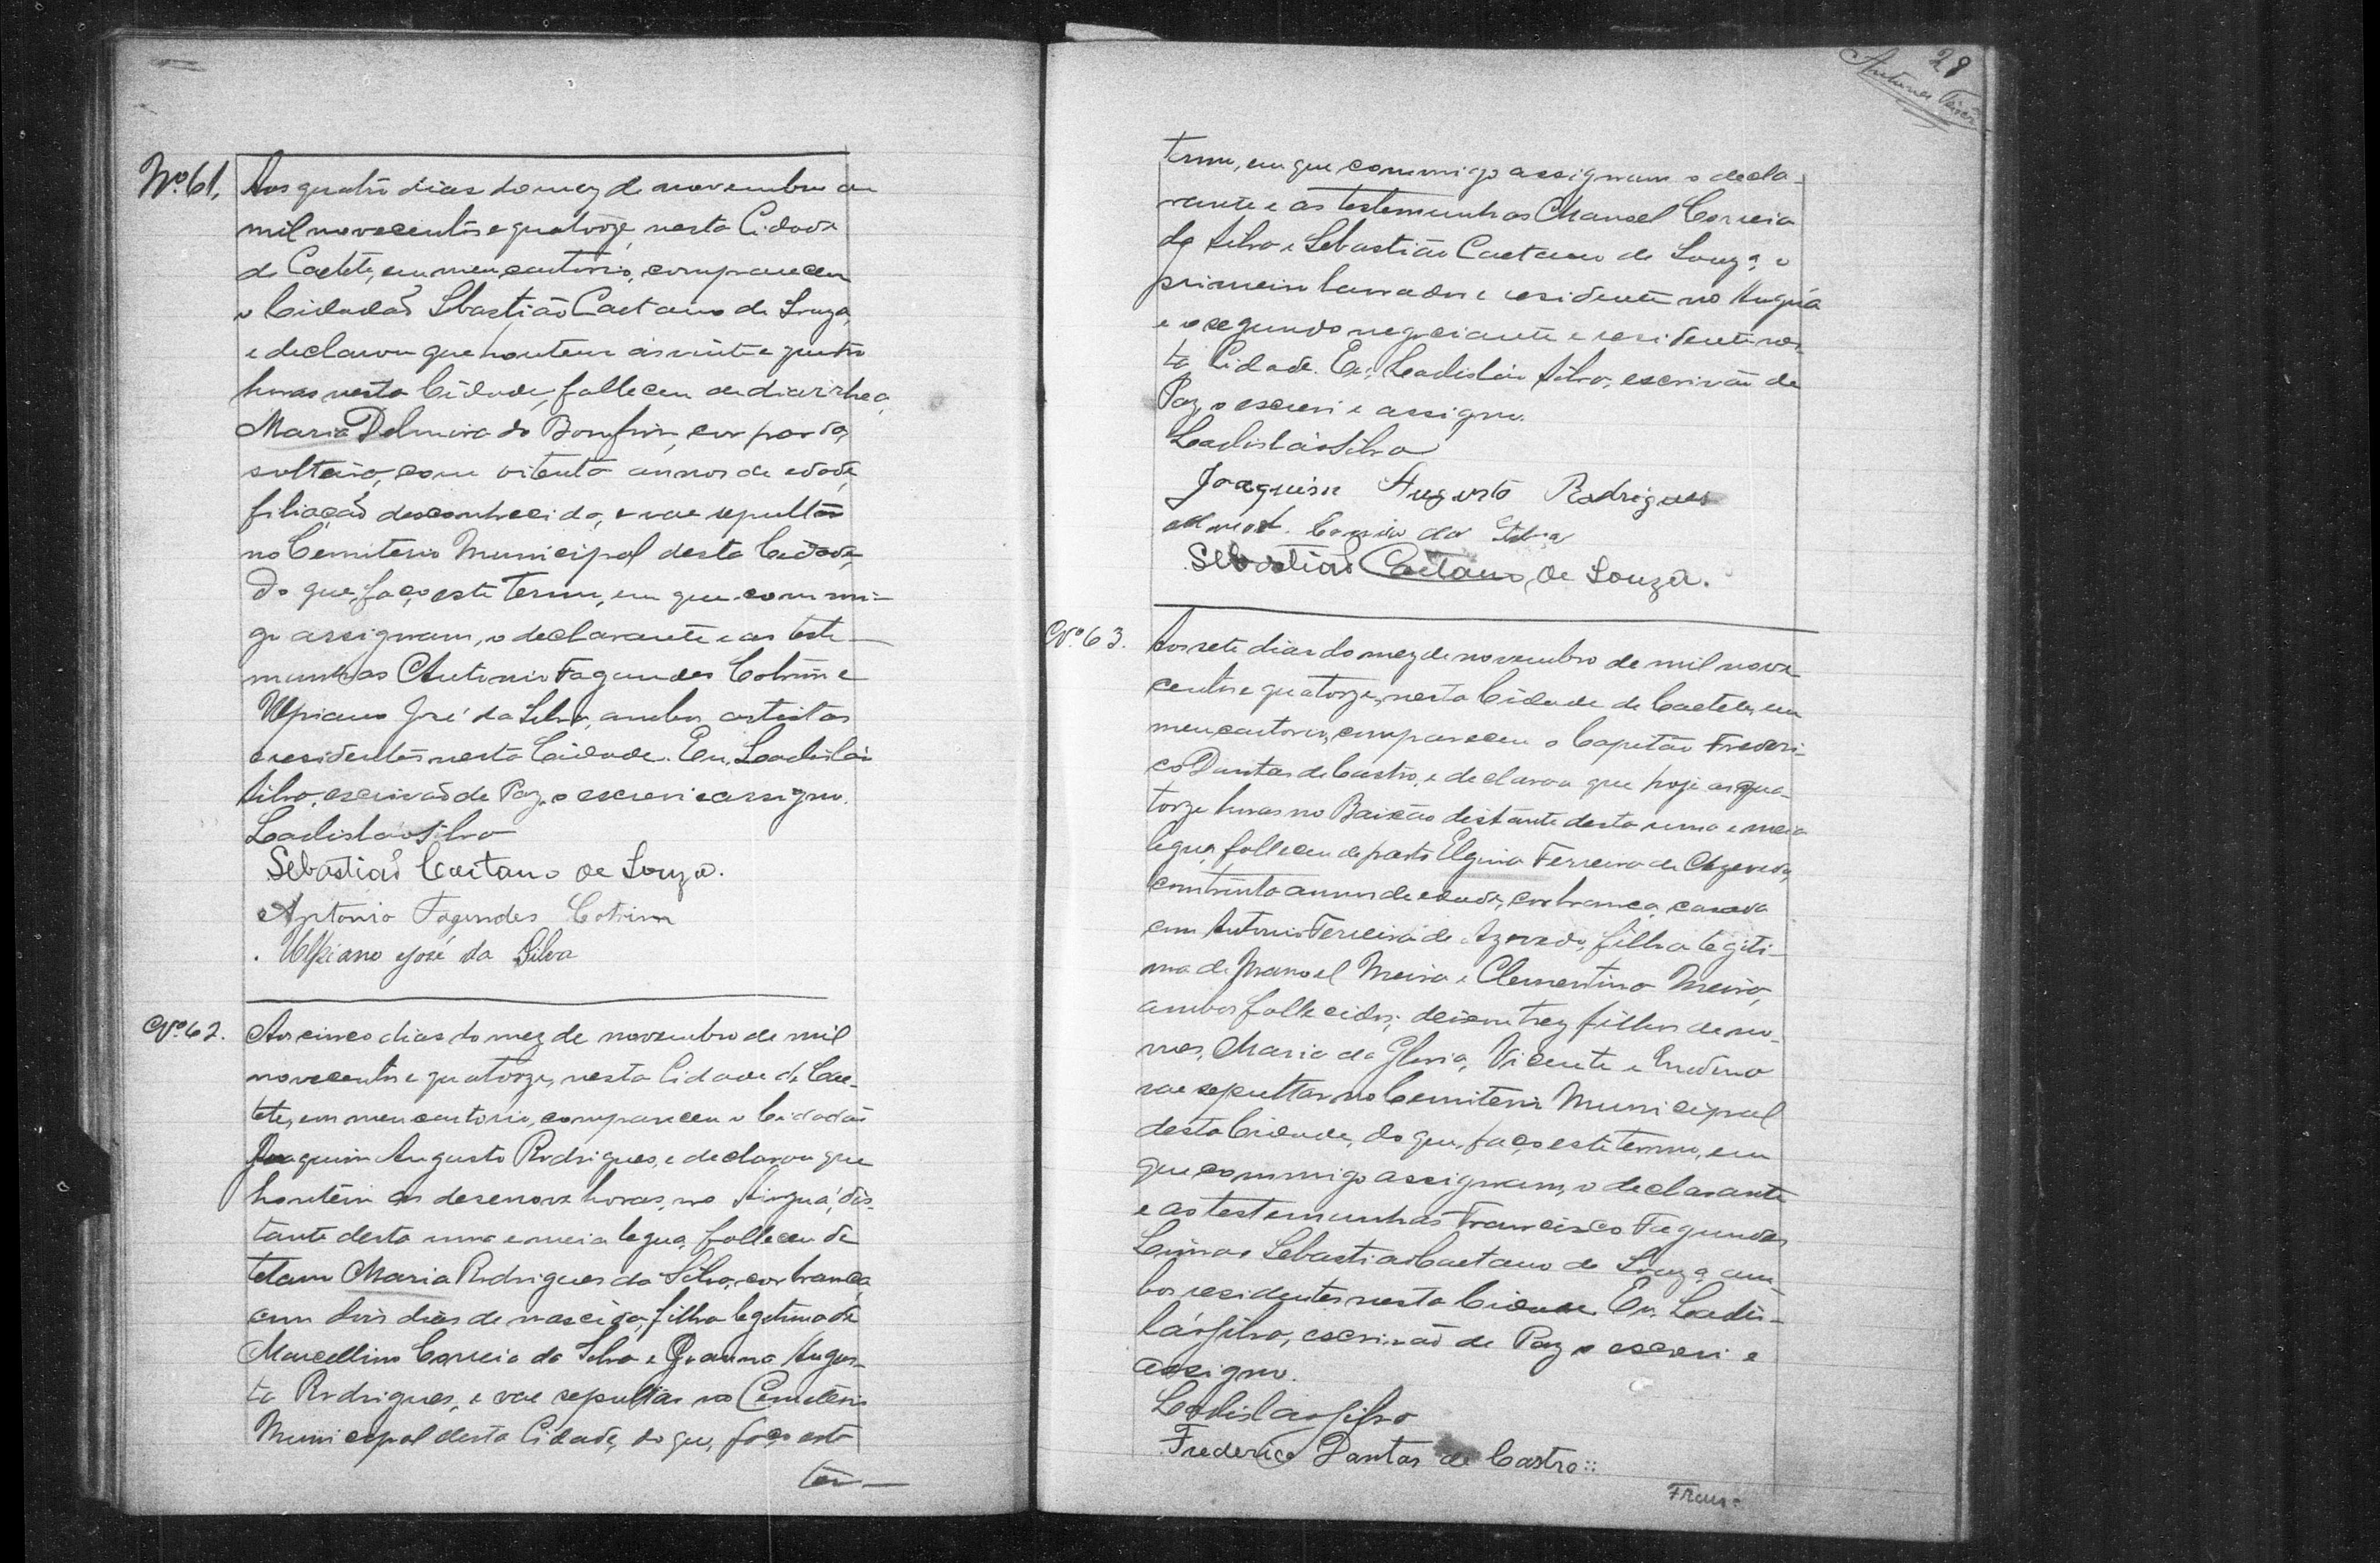 Nº 61. Aos quatro dias do mez de novembro de
mil novecentos e quatorze, nesta Cidade
de Caeteté, em meu cartorio, compareceu
o Cidadaõ Sebastião Caetano de Souza,
e declarou que hontem ás vinte e quatro
horas nesta Cidade, falleceu de diarrhea,
Maria Delmira do Bomfim, cor parda,
solteira, com oitenta annos de edade,
filiaçaõ desconhecida, e vae sepultar
no Cemiterio Municipal desta Cidade,
do que, faço este termo, em que commi-
go assignam, o declarante e as teste-
munhas Antonio Fagundes Cotrim e
Ulpiano José da Silva, ambos artistas
e residentes nesta Cidade. Eu, Ladisláo
Silva, escrivaõ de Paz, o escrevi e assigno.
Ladislao Silva
Sebastiaõ Caetano de Souza.
Antonio Fagundes Cotrim
Ulpiano José da Silva
Nº 62. Aos cinco dias do mez de novembro de mil
novecentos e quatorze, nesta Cidade de Cae-
teté, em meu cartorio, compareceu o Cidadaõ
Joaquim Augusto Rodrigues, e declarou que
hontem as desenove horas, no , dis-
tante desta uma e meia legua, falleceu de
tetano Maria Rodrigues da Silva, cor branca,
com dois dias de nascida, filha legitima de
Marcellino Correia da Silva e Joanna Augus-
ta Rodrigues, e vae sepultar no Cemiterio
Municipal desta Cidade, do que, faço este
ter-
28
Antunes
termo, em que commigo assignam o decla-
rante e as testemunhas Manoel Correia
da Silva e Sebastião Caetano de Souza, o
primeiro lavrador e residente no
e o segundo negociante e residente nes-
ta Cidade. Eu, Ladisláo Silva, escrivão de
Paz, o escrevi e assigno.
Ladisláo Silva
Joaquim Augusto Rodrigues
Manoel Correia da Silva
Sebastiaõ Caetano de Souza.
Nº 63. Aos sete dias do mez de novembro de mil nove
centos e quatorze, nesta Cidade de Caeteté, em
meu cartorio, compareceu o Capitão Frederi-
co Dantas de Castro, e declarou que hoje as qua-
torze horas no Baixão distante desta uma e meia
legua, falleceu de parto Elgina Ferreira de Azevedo,
com trinta annos de edade, cor branca, casada
com Antonio Ferreira de Azevedo, filha legiti-
ma de Manoel Meira e Clementina Meira,
ambos fallecidos; deixou trez filhos de no-
mes, Maria da Gloria, Vicente e
vae sepultar no Cemiterio Municipal
desta Cidade, do que, faço este termo, em
que commigo assignam, o declarante
e as testemunhas Francisco Fagundes
Lima e Sebastiaõ Caetano de Souza, am-
bos residentes nesta Cidade. Eu, Ladis-
láo Silva, escrivaõ de Paz o escrevi e
assigno.
Ladislao Silva
Frederico Dantas de Castro::
Fran: